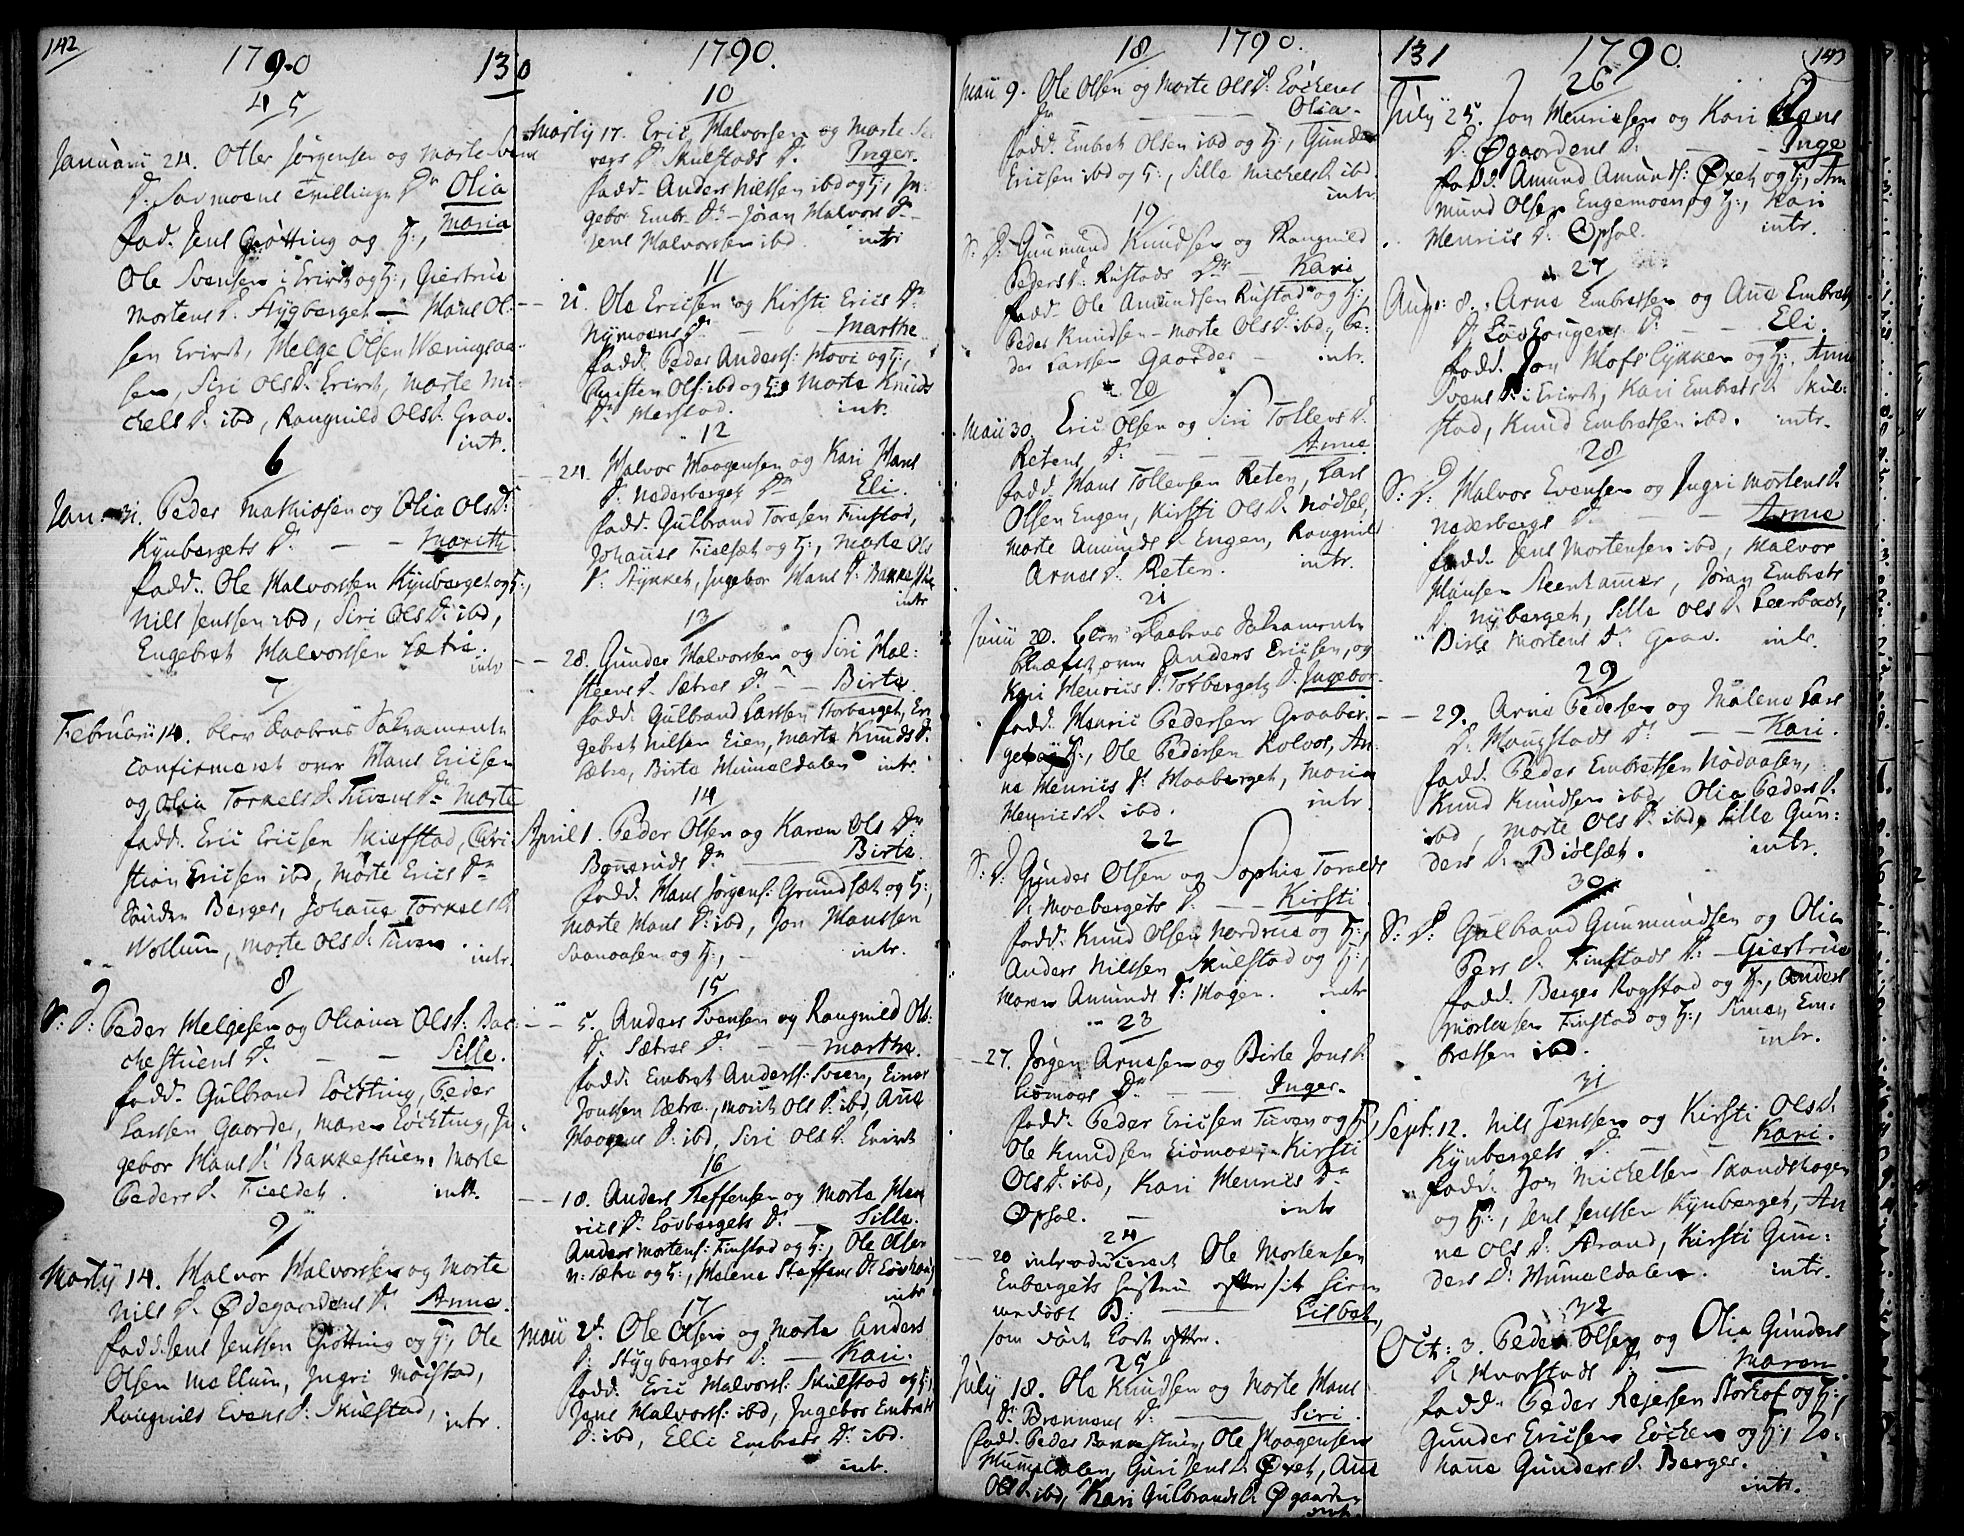 142
1790
130
4 5
Januarii 24. Otter Jørgensen og Marte Svens
D: Savmoens Tvillinge Dr Olia
fad. Jens Grøtting og H:, Maria
Ole Svensen i Evret og H:, Giertrue
Mortens D. Stygberget — Hans Ol-
sen Evret, Helge Olsen Wæringsaa-
sen, Siri Ols D. Evret, Marte Mi-
chels D. ibd, Rangnild Ols D. Grav.
intr.
6
Jan: 31. Peder Mathiesen og Olia Ols D:
Kynbergets D. — — Marith
fadd. Ole Halvorsen Kynberget og H:,
Nils Jenssen ibd, Siri Ols D: ibd,
Engebret Halvorssen Sætre.
intr
7
Februarii 14. blev Daabens Sakramente
confirmeret over Hans Ericsen
og Olia Torkels D. Tuvens Dr Marte
fadd. Eric Ericsen Skiefstad, Chri-
stian Ericsen ibd, Marte Erics Dr
Sønden Berger, Johanne Torkels D.
Wollum, Marte Ols D. Tuven.
intr.
8
S: D: Peder Helgesen og Oliana Ols D: Bac-
chestuens D. — — Sille.
fadd. Gulbrand Løchting, Peder
Larssen Gaarder, Maren Løchting, In-
gebor Hans D. Bakkestuen, Marte
Peders D. Fieldet. intr.
9
Martij 14. Halvor Halvorssen og Marte
Nils D. Ødegaardens D. Anne.
fadd. Jens Jenssen Grøtting og H:, Ole
Olsen Mellum, Ingri Moistad,
Rangnild Evens D. Skulstad,
intr.
1790.
10
Martij 17. Eric Halvorsen og Marte Si-
vers D. Skulstads D. Inger.
fadd. Anders Nilssen ibd og H:, In-
gebor Embr. Dr – Jøran Halvors Dr –
Jens Halvorssen ibd. intr
11
— 21. Ole Ericsen og Kirsti Erics Dr
Nymoens D. — — Marthe
fadd. Peder Anderss: Hovi og H:,
Christen Ols: ibd og H: Marte Knuds
Dr Merstad. intr.
12
— 24. Halvor Haagensen og Kari Hans
D. Nederbergets Dr Eli.
fadd. Gulbrand Toresen Finstad,
Johanes Fielset og H:, Marte Ols
D. Stykket, Ingebor Hans D. Bakkestue
intr
13
— 28. Gunder Halvorssen og Siri Hal-
steens D. Sætres D. — Birte.
fadd. Gulbrand Larssen Storberget, En-
gebret Nilsen Eien, Marte Knuds D.
Sætre, Birte Hummeldalen intr.
14
April 1. Peder Olsen og Karen Ols Dr
Boneruds Dr — Birte.
fadd. Hans Jørgens: Grundset og H:,
Marte Hans D. ibd, Jon Hanssen
Svanaasen og H:, — intr.
15
— 5. Anders Svensen og Rangnild Ols-
D. Sætres D. — — Marthe.
fadd. Embret Anderss: Sveen, Einer
Jonssen Sætre, Marit Ols D. ibd, Ane
Haagens D. ibd, Siri Ols D. Evret
16
— 18. Anders Steffensen og Marte Hen
rics D. Løvbergets D. — Sille.
Anders Mortens: Finstad og H:, Ole Olsen
N: Sætre og H:, Malene Steffens D. Løvhaug
intr
17
Maii 2d. Ole Olsen og Marte Anders
D: Stygbergets D: — Kari.
fadd. Eric Halvorss: Skulstad og H:,
Jens Halvorss: ibd, Ingebor Embrets
D: ibd, Elli Embrets D: ibd.
intr.
18
1790.
Maii 9. Ole Olsen og Marte Ols D: Løckens
Dr — — — Olia.
fadd. Embret Olsen ibd og H:, Gunder
Ericsen ibd og H:, Sille Michels D. ibd.
intr.
19
S: D: Gunmund Knudsen og Rangnild
Peders D. Rustads Dr — Kari
fadd. Ole Amundsen Rustad og H:,
Peder Knudsen – Marte Ols D. ibd, Pe-
der Larssen Gaarder — intr.
20
Maii 30. Eric Olsen og Siri Tollevs D:
Retens D: — — Anne
fadd. Hans Tollevsen Reten, Lars
Olsen Engen, Kirsti Ols D. Nødset,
Marte Amunds D. Engen, Rangnild
Arnes D. Reten. intr.
21
Junii 20. blev Daabens Sakramente
bekræftet over Anders Ericsen, og
Kari Henrics D. Torbergets D. Ingebor.
fadd. Henric Pedersen Graaber-
get og H:, Ole Pedersen Kolvos, An-
ne Henrics D: Moaberget, Maria
Henrics D. ibd. intr.
22
S: D: Gunder Olsen og Sophia Toralds
D. Moabergets D. — Kirsti
fadd. Knud Olsen Nordrue og H:,
Anders Nilssen Skulstad og H:,
Maren Amunds D: Mogen. intr
23
— 27. Jørgen Arnesen og Birte Jons D.
Liømoes Dr — — Inger.
fadd. Peder Ericsen Tuven og H:,
Ole Knudsen Liømoe, – Kirsti
Ols D. ibd, Kari Henrics Dr
Opsal. — intr
24
— 20 introduceret Ole Mortensen
Enbergets Hustru efter sit hiem
medøbt B: — Lisbet,
som døde kort efter.
25
July 18. Ole Knudsen og Marte Hans
D: Brennens D: — Siri.
fadd. Peder Bakkestuen, Ole Haagensen
Hummeldalen, Guri Jens D. Øxet, Ane
Ols D. ibd, Kari Gulbrands D. Øgaarden
intr.
131
1790.
143
26
July 25. Jon Henricsen og Kari Hans
D: Øgaardens D: — — Inge
fadd. Amund Amunds: Øxet og H:, Am
mund Olsen Engemoen og H:, Kari
Henrics D: Opsal. intr.
27
Aug: 8. Arne Embretsen og Ane Embrets
D. Løvhougens D. — — Eli.
fadd. Jon Hofslykken og H:, Anne
Svens D. i Evret, Kari Embrets D. Skul-
stad, Knud Embretsen ibd. intr.
28
S: D: Halvor Evensen og Ingri Mortens D.
Nederbergs D. — — Anne
fadd. Jens Mortensen ibd, Halvor
Hansen Steenkamer, Jøran Embrets
D. Nyberget, Sille Ols D. Leerbæk,
Birte Mortens Dr Grav. intr.
29
— 29. Arne Pedersen og Malene Lars
D. Haugstads D. — Kari.
fadd. Peder Embretsen Nødaasen,
Knud Knudsen ibd, Olia Peders D.
ibd, Marte Ols D. ibd, Sille Gun-
ders D. Biølset. intr.
30
S: D: Gulbrand Gunmundsen og Olia
Pers D. Finstads D: — Giertrue
fadd. Berger Rogstad og H:, Anders
Mortensen Finstad og H:, Simen Em-
bretsen ibd. intr.
31
Sept: 12. Nils Jenssen og Kirsti Ols D.
Kynbergets D. — — Kari.
fadd. Jon Michelsen Skandshagen
og H:, Jens Jenssen Kynberget, An
ne Ols D. Strand, Kirsti Gun-
ders D. Hummeldalen. intr.
32
Oct: 3. Peder Olsen og Olia Gunders
D. Huorstads D. — Maren
fadd. Peder Rejersen Storhof og H:,
Gunder Ericsen Løcken og H:, Jo-
hanne Gunders D. Berger.
intr.